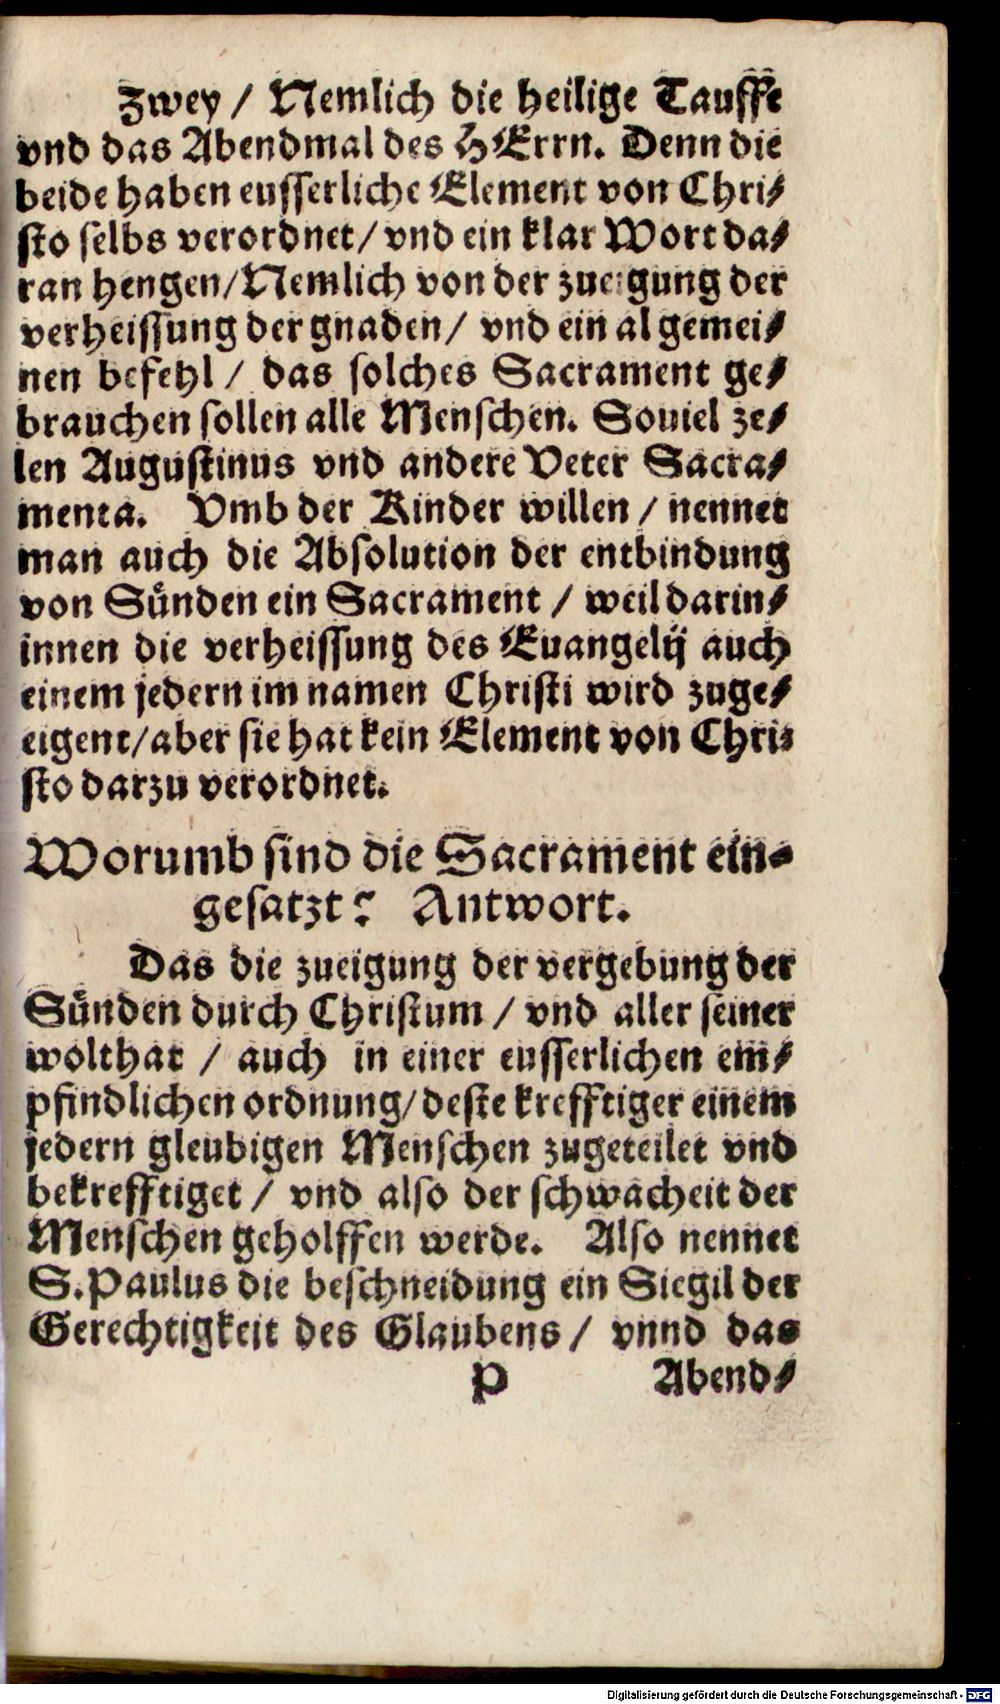 Zwey / Nemlich die heilige Tauffe
vnd das Abendmal des HErrn. Denn die
beide haben eusserliche Element von Chri⸗
sto selbs verordnet / vnd ein klar Wort da⸗
ran hengen / Nemlich von der zueigung der
verheissung der gnaden / vnd ein algemei⸗
nen befehl / das solches Sacrament ge⸗
brauchen sollen alle Menschen. Souiel ze⸗
len Augustinus vnd andere Veter Sacra⸗
menta. Vmb der Kinder willen / nennet
man auch die Absolution der entbindung
von Sünden ein Sacrament / weil darin⸗
innen die verheissung des Euangelij auch
einem jedern im namen Christi wird zuge⸗
eigent / aber sie hat kein Element von Chri⸗
sto darzu verordnet.
Worumb sind die Sacrament ein⸗
gesatzt? Antwort.
Das die zueigung der vergebung der
Sünden durch Christum / vnd aller seiner
wolthat / auch in einer eusserlichen em⸗
pfindlichen ordnung / deste krefftiger einem
jedern gleubigen Menschen zugeteilet vnd
bekrefftiget / vnd also der schwacheit der
Menschen geholffen werde. Also nennet
S. Paulus die beschneidung ein Siegil der
Gerechtigkeit des Glaubens / vnnd das
P Abend⸗
Digitalisierung gefördert durch die Deutsche Forschungsgemeinschaft - DFG